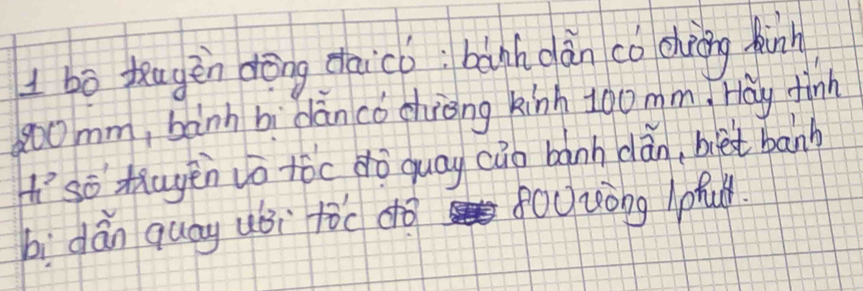 1 bộ truyền động đai có : bánh dẫn có đường kính
200 mm, bánh bị dẫn có đường kính 100 mm. Hãy tính
tỉ số truyền và tốc độ quay của bánh dẫn, biết bánh
bị dẫn quay với tốc độ 800 vòng / phút.